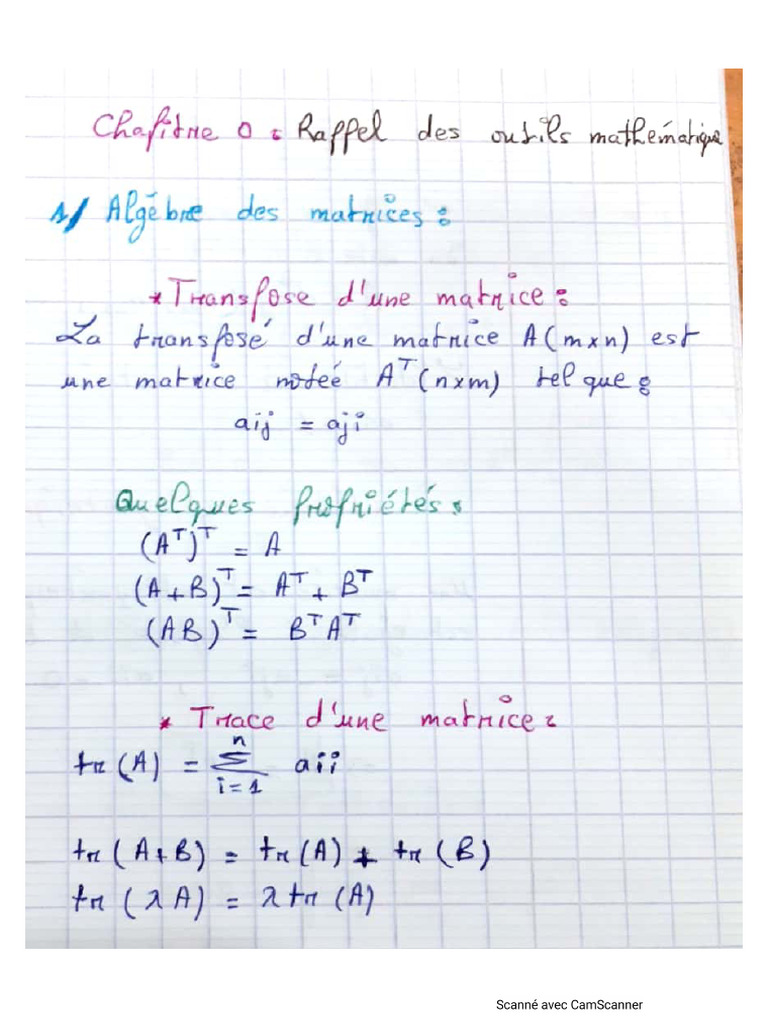 Chapitre 0 : Rappel des outils mathématique
1/ Algèbre des matrices :
* Transpose d'une matrice :
La transposé d'une matrice A(m×n) est
une matrice notée Aᵀ(n×m) tel que :
aij = aji
Quelques propriétés :
(Aᵀ)ᵀ = A
(A+B)ᵀ = Aᵀ + Bᵀ
(AB)ᵀ = BᵀAᵀ
* Trace d'une matrice :
n
tr(A) = Σ aii
i=1
tr(A+B) = tr(A) + tr(B)
tr(λA) = λtr(A)
Scanné avec CamScanner